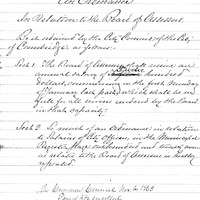 An Ordinance
In Relation to the Board of Assessors.
Be it ordained by the City Council of the City
of Cambridge as follows:
Sect 1. The Board of Assessors shall receive an
annual salary of hundred
dollars, commencing on the first Monday
of January last past, which shall be in
full for all services rendered by the Board
in that capacity.
Sect 2. So much of an Ordinance in relation
to Salaries of City officers in the Municipal
Register, page one hundred and
as relates to the Board of Assessors is hereby
repealed.
In Common Council Nov 4 1863